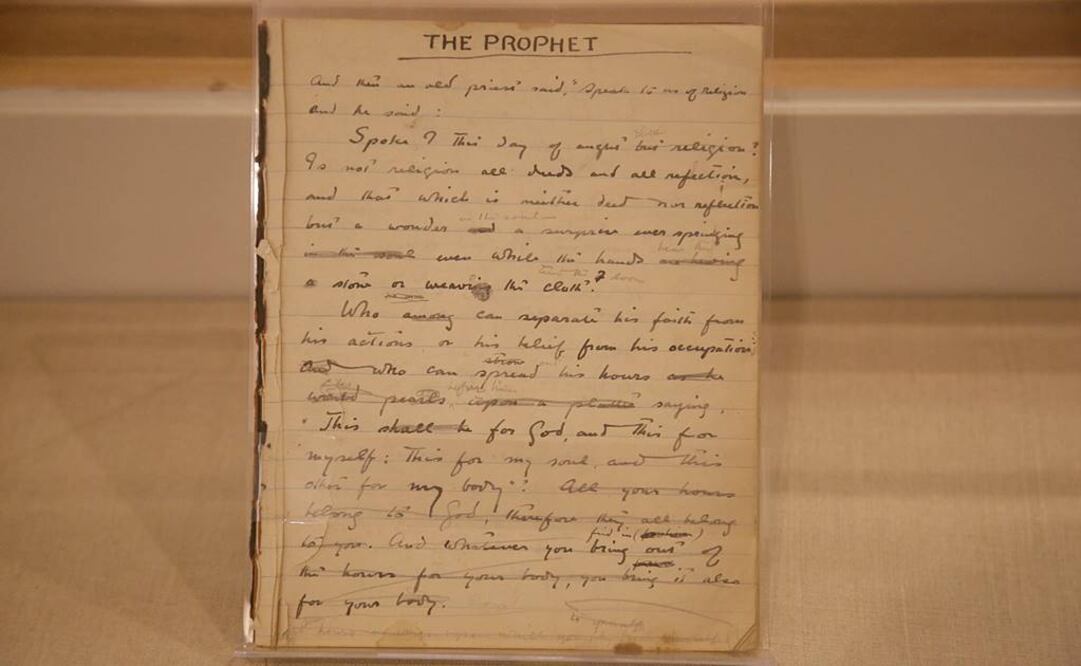 THE PROPHET
And then an old priest said, "Speak to us of religion
and he said:
Spoke I this day of aught but religion?
Is not religion all deeds and all reflection,
and that which is neither deed nor reflection
but a wonder and a surprise ever springing
in the soul even while the hands are hewing
a stone or weaving the cloth?
Who among can separate his faith from
his actions or his belief from his occupation
strew
And who can spread his hours as he
before him
would pearls, upon a platter saying,
"This shall be for God, and this for
myself: This for my soul, and this
other for my body"? All your hours
belong to God, therefore they all belong
find in
to you. And whatever you bring out of
the hours for your body, you bring it also
for your body.
to yourself